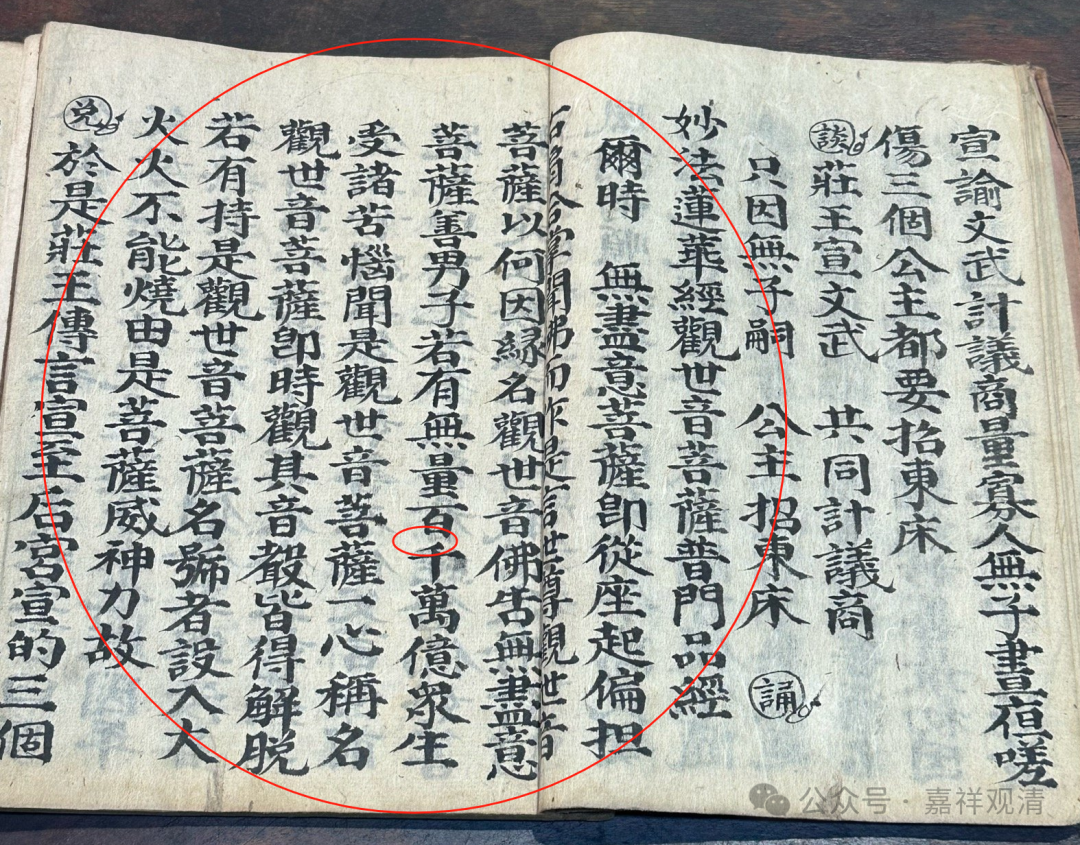 宣諭文武計議商量寡人無子晝夜嗟
傷三個公主都要招東床
談
莊王宣文武 共同計議商
只因無子嗣 公主招東床
誦
妙法蓮華經觀世音菩薩普門品經
爾時 無盡意菩薩即從座起偏担
右肩合掌聞佛而作是言世尊觀世音
菩薩以何因緣名觀世音佛告無盡意
菩薩善男子若有無量百千萬億眾生
受諸苦惱聞是觀世音菩薩一心稱名
觀世音菩薩即時觀其音聲皆得解脫
若有持是觀世音菩薩名號者設入大
火火不能燒由是菩薩威神力故
兌
於是莊王傳言宣至后宮宣的三個
公众号·嘉祥观清